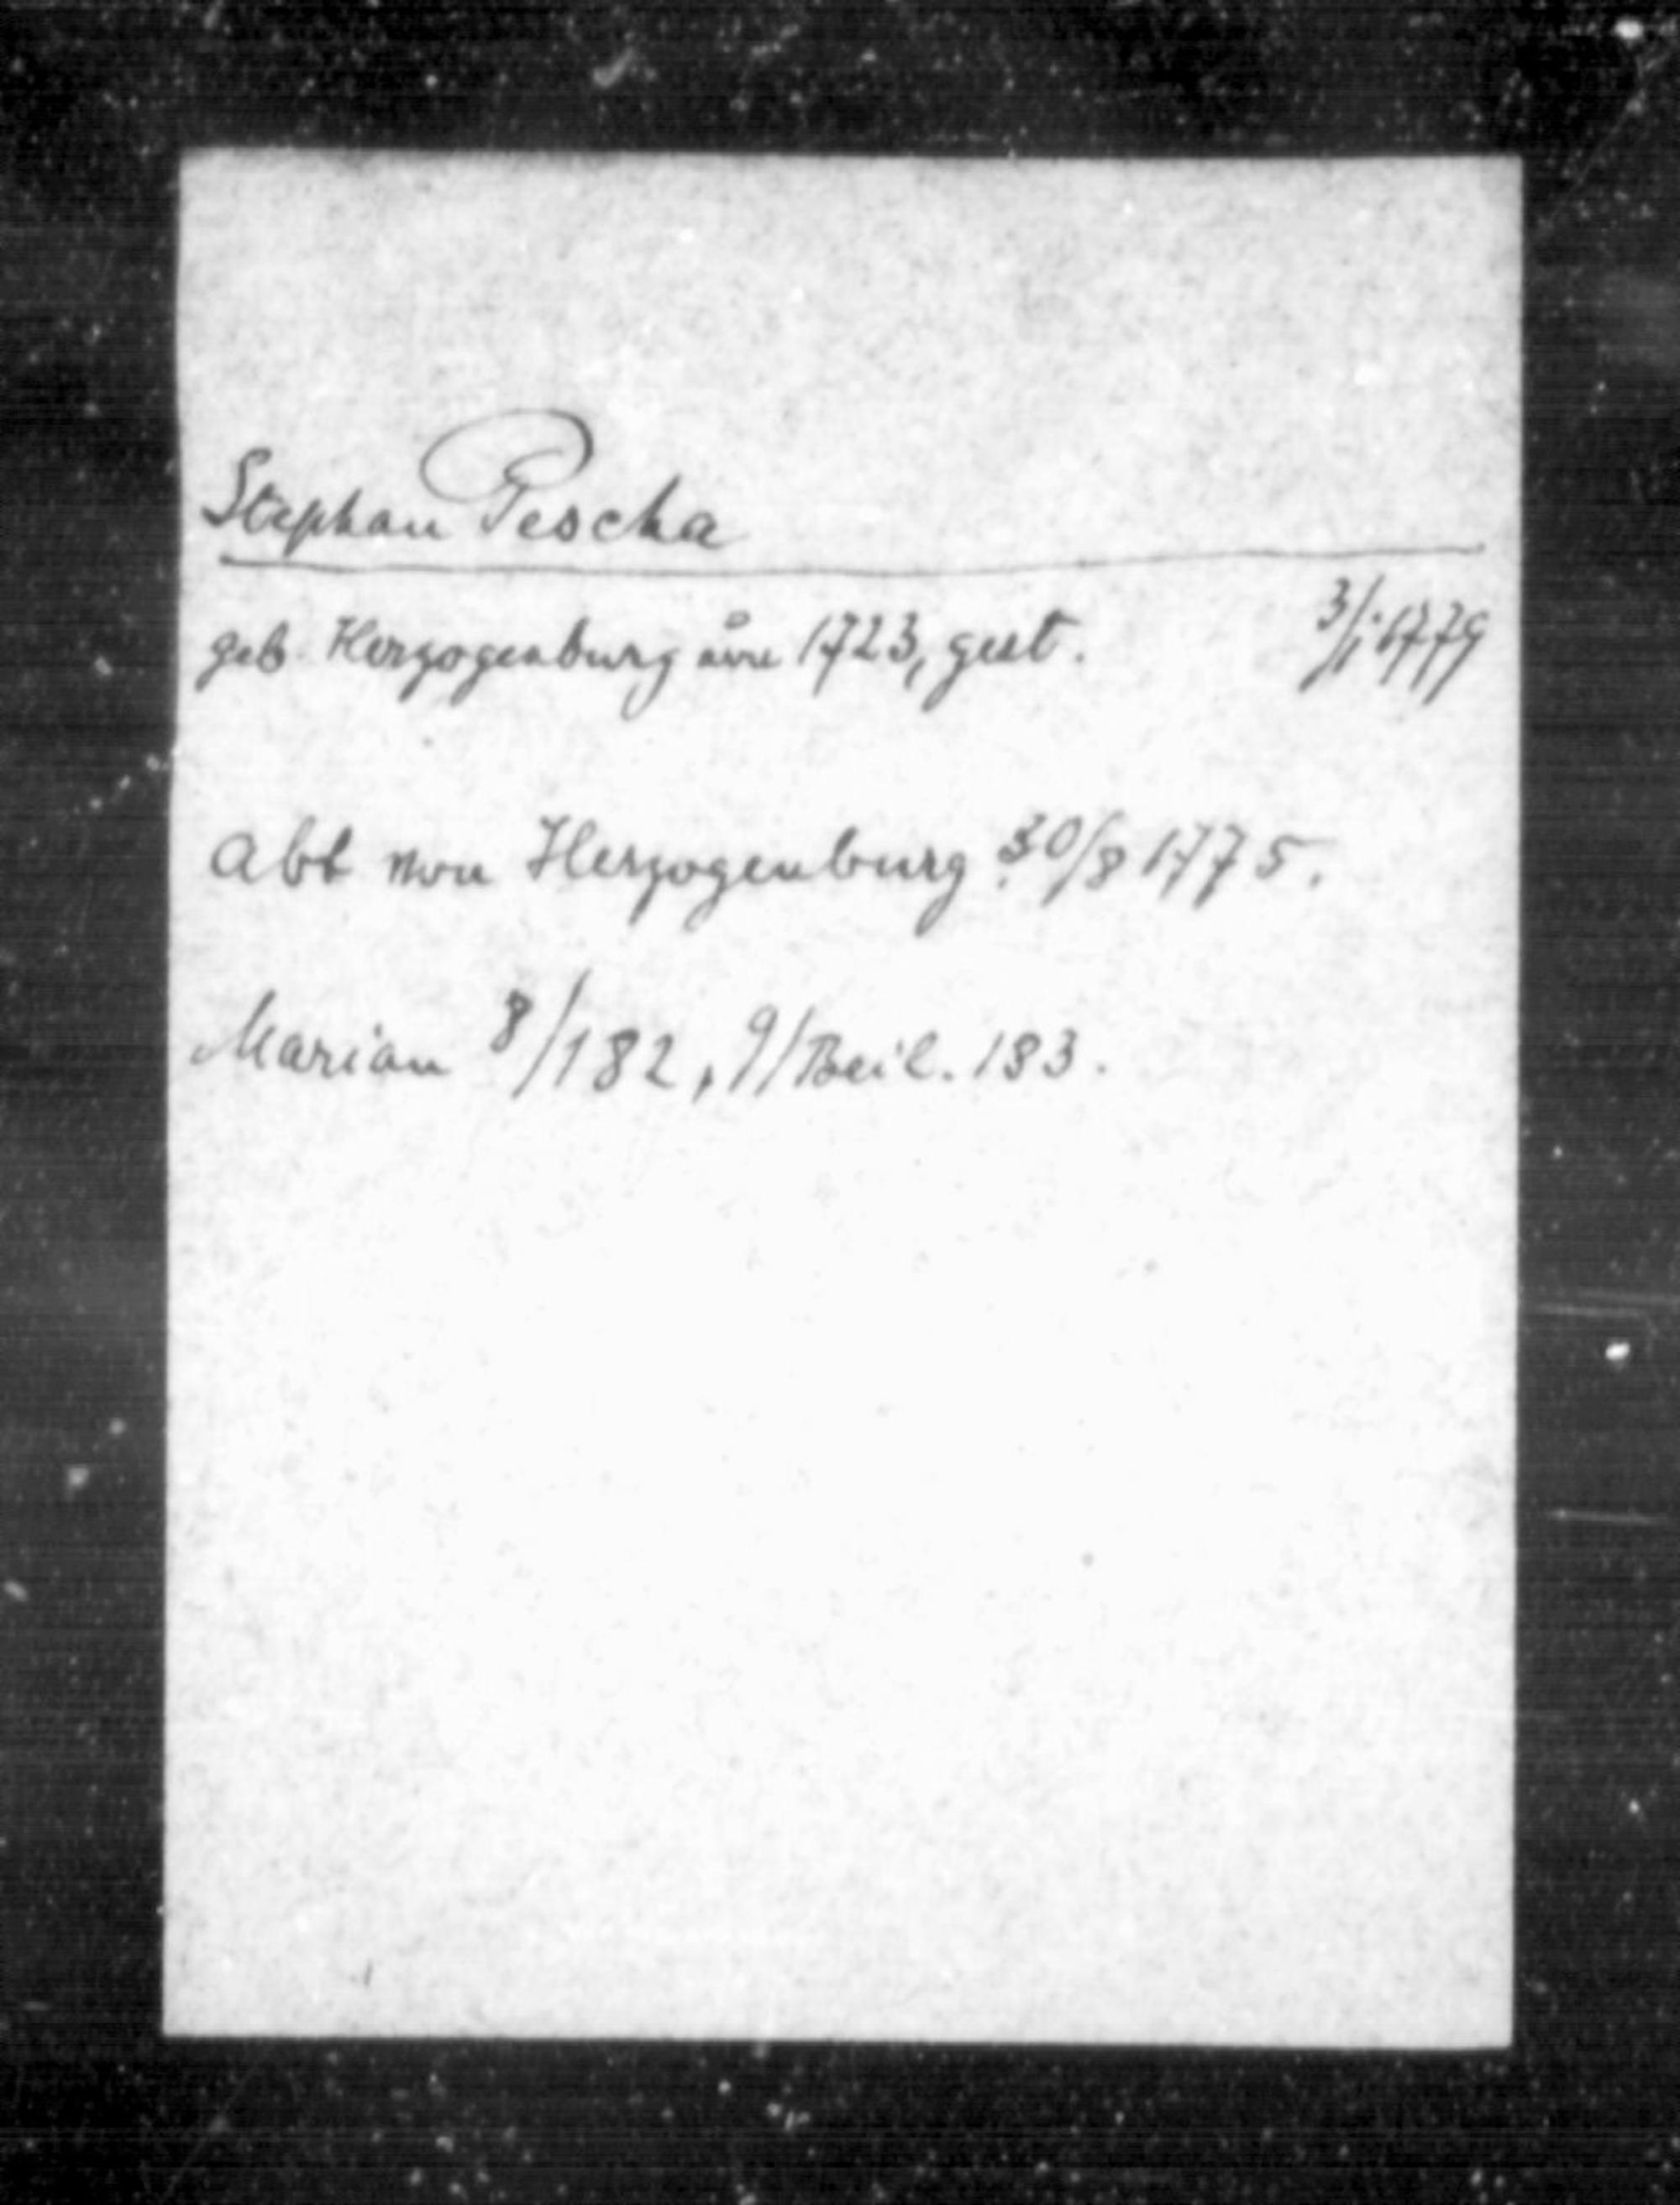 Stephan Pescha
geb. Herzogenburg um 1723, gest. 3/1 1779
Abt von Herzogenburg 30/8 1775.
Marian 8/182, 9/Beil. 183.